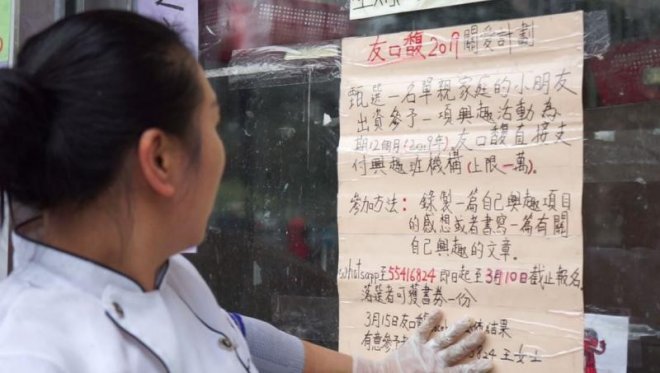 友口馥2019關愛計劃
甄選一名單親家庭的小朋友
出資參予一項興趣活動為
期12個月(2019年)。友口馥直接支
付興趣班機構(上限一萬)。
參加方法：錄製一篇自己興趣項目
的感想或者書寫一篇有關
自己興趣的文章。
whatsapp至55416824 即日起至3月10日截止報名
落選者可獲書券一份
3月15日友口馥 結果
有意參予 824 王女士